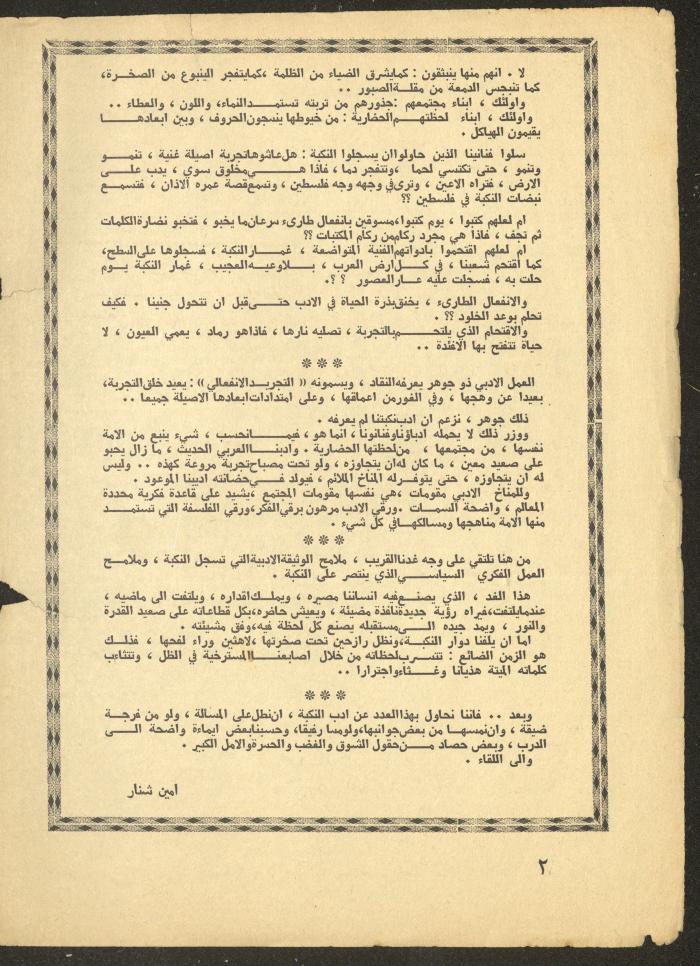 لا . انهم منها ينبثقون : كمايشرق الضياء من الظلمة ،كمايتفجر الينبوع من الصخرة،
كما تنبجس الدمعة من مقلةالصبور ..
واولئك ، ابناء مجتمعهم :جذورهم من تربته تستمدالنماء، واللون ، والعطاء ..
واولئك ، ابناء لحظتهم الحضارية : من خيوطها ينسجون الحروف ، وبين ابعادها
يقيمون الهياكل .
سلوا فنانينا الذين حاولوا ان يسجلوا النكبة : هل عاشوهاتجربة اصيلة غنية ، تنمو
وتنمو ، حتى تكتسي لحما ،وتتفجر دما ، فاذا هي مخلوق سوي ، يدب على
الارض ، فتراه الاعين ، وترى في وجهه وجه فلسطين ، وتسمع قصة عمره الاذان ، فتسمع
نبضات النكبة في فلسطين ؟؟
ام لعلهم كتبوا ، يوم كتبوا،مسوقين بانفعال طارىء سرعان ما يخبو ، فتخبو نضارة الكلمات
ثم تجف ، فاذا هي مجرد ركام من ركام المكتبات ؟؟
ام لعلهم اقتحموا بادواتهم الفنية المتواضعة ، غمار النكبة ، فسجلوها على السطح،
كما اقتحم شعبنا ، في كل ارض العرب ، بلا وعيه العجيب ، غمار النكبة يوم
حلت به ، فسجلت عليه عار العصور ؟ ؟.
والانفعال الطارىء ، يخنق بذرة الحياة في الادب حتى قبل ان تتحول جنينا . فكيف
تحلم بوعد الخلود ؟؟ .
والاقتحام الذي يلتحم بالتجربة ، تصليه نارها ، فاذاهو رماد ، يعمي العيون ، لا
حياة تتفتح بها الافئدة ..
* * *
العمل الادبي ذو جوهر يعرفه النقاد ، ويسمونه « التجريد الانفعالي » : يعيد خلق التجربة،
بعيدا عن وهجها ، وفي الغور من اعماقها ، وعلى امتدادات ابعادها الاصيلة جميعا ..
ذلك جوهر ، نزعم ان ادب نكبتنا لم يعرفه .
ووزر ذلك لا يحمله ادباؤنا وفنانونا، انما هو ، فيما نحسب ، شيء ينبع من الامة
نفسها ، من مجتمعها ، من لحظتها الحضارية . وادبنا العربي الحديث ، ما زال يحبو
على صعيد معين ، ما كان له ان يتجاوزه ، ولو تحت مصباح تجربة مروعة كهذه .. وليس
له ان يتجاوزه ، حتى يتوفر له المناخ الملائم ، فيولد في حضانته ادبنا الموعود .
وللمناخ الادبي مقومات ،هي نفسها مقومات المجتمع ،يشيد على قاعدة فكرية محددة
المعالم ، واضحة السمات .ورقي الادب مرهون برقي الفكر،ورقي الفلسفة التي تستمد
منها الامة مناهجها ومسالكها في كل شيء .
* * *
من هنا تلتقي على وجه غدنا القريب ، ملامح الوثيقة الادبية التي تسجل النكبة ، وملامح
العمل الفكري السياسي الذي ينتصر على النكبة .
هذا الغد ، الذي يصنع فيه انساننا مصيره ، ويملك اقداره ، ويلتفت الى ماضيه ،
عندمايلتفت،فيراه رؤية جديدة نافذة مضيئة ، ويعيش حاضره،بكل قطاعاته على صعيد القدرة
والنور ، ويمد جيده الى مستقبله يصنع كل لحظة فيه،وفق مشيئته .
اما ان يلفنا دوار النكبة ،ونظل رازحين تحت صخرتها ،لاهثين وراء لفحها ، فذلك
هو الزمن الضائع : تتسرب لحظاته من خلال اصابعنا المسترخية في الظل ، وتتثاءب
كلماته الميتة هذيانا وغثاء واجترارا ..
* * *
وبعد .. فاننا نحاول بهذا العدد عن ادب النكبة ، ان نطل على المسالة ، ولو من فرجة
ضيقة ، وان نمسها من بعض جوانبها،ولو مسا رفيقا، وحسبنا بعض ايماءة واضحة الى
الدرب ، وبعض حصاد من حقول الشوق والغضب والحسرة والامل الكبير .
والى اللقاء .
امين شنار
٢